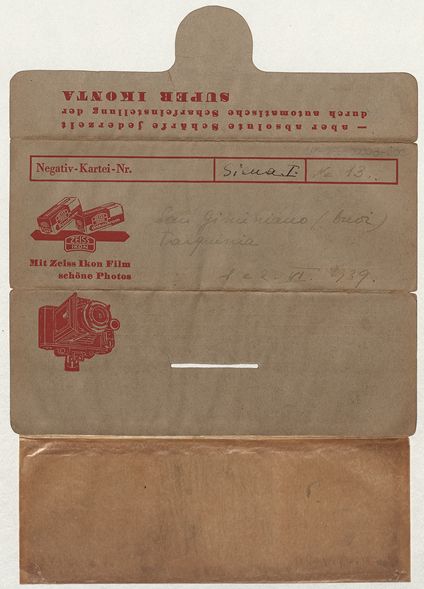 — aber absolute Schärfe jederzeit
durch automatische Scharfeinstellung der
SUPER IKONTA
Negativ-Kartei-Nr. Siena I. No 13.
San Gimignano (buoi)
Tarquinia
VI. 1939.
ZEISS
IKON
Mit Zeiss Ikon Film
schöne Photos